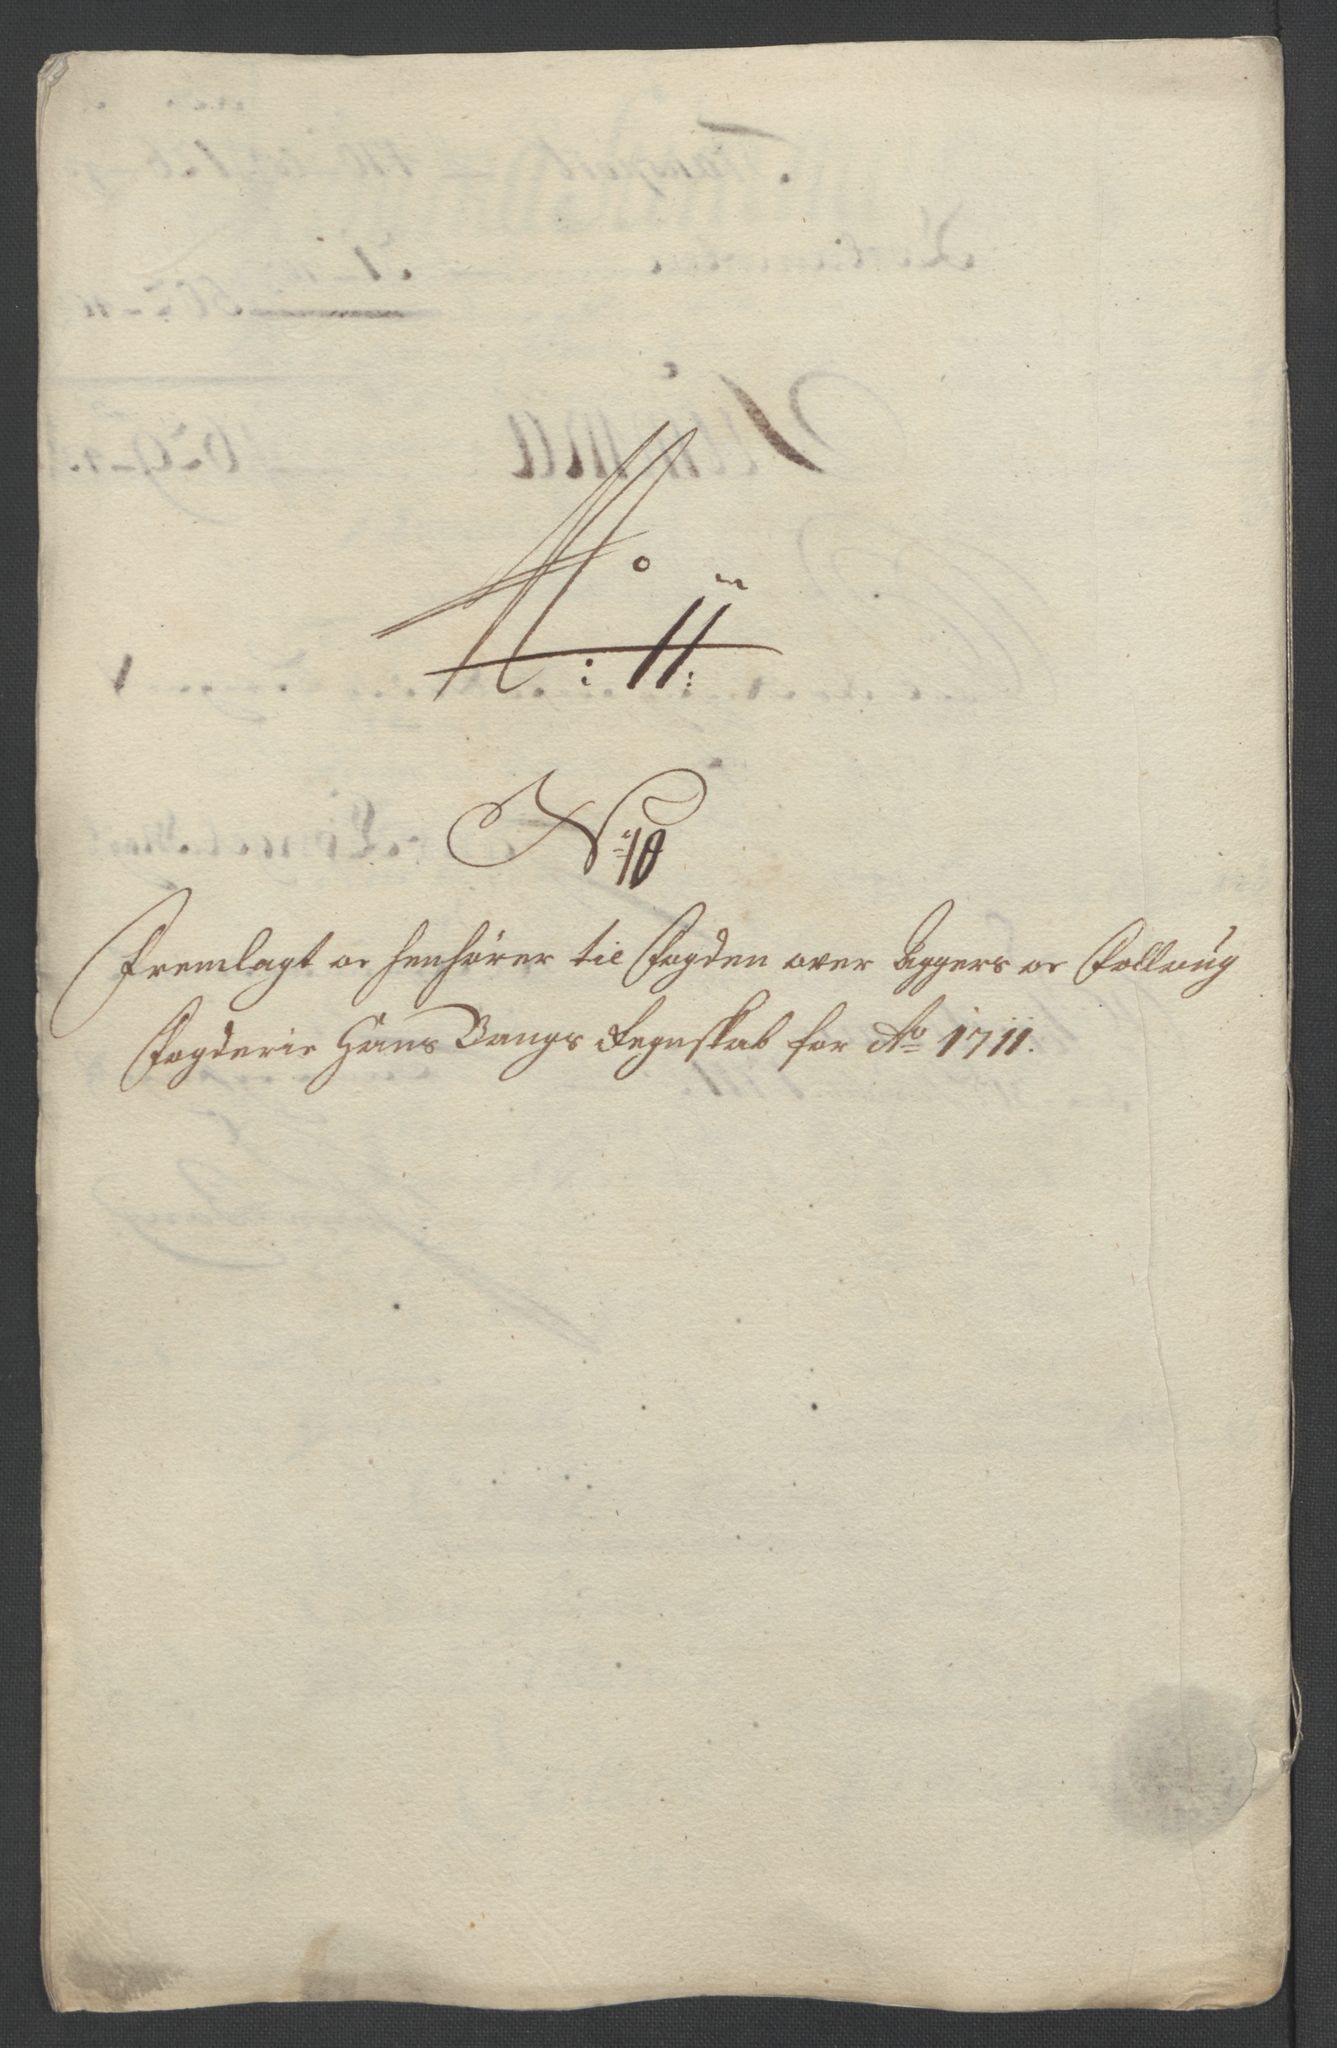 No
: 11:
No 10
Fremlagt oc henhører til Fogden over Aggers oc Folloug
Fogderie Hans Bangs Regnskab for Ao 1711.